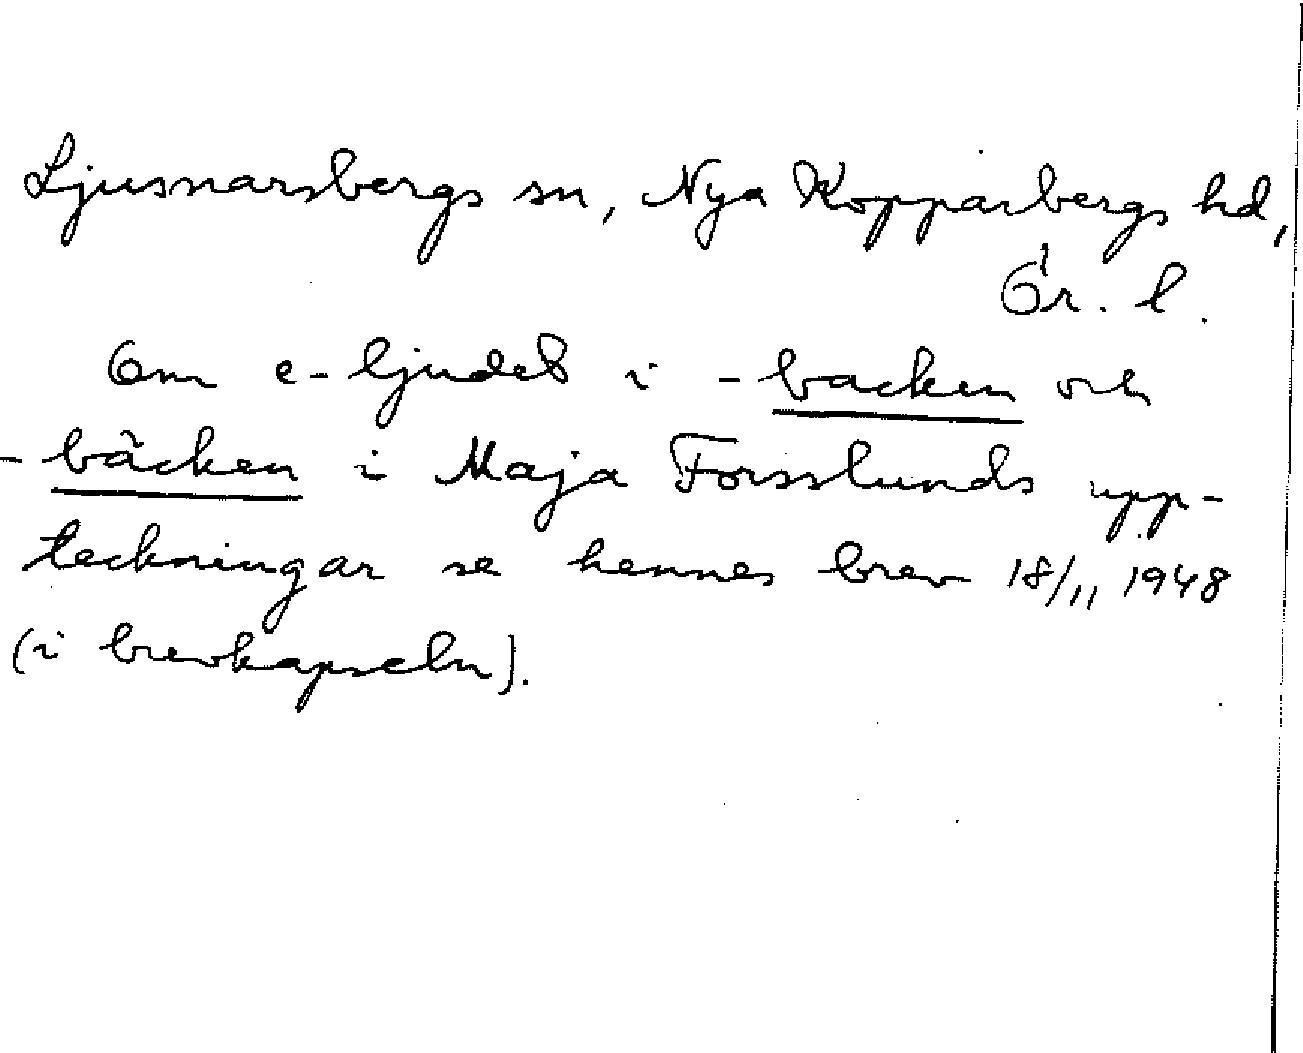 Ljusnarsbergs sn, Nya Kopparbergs hd,
Ör. l.
Om e-ljudet i -backen och
-bäcken i Maja Forsslunds upp-
teckningar se hennes brev 18/11 1948
(i brevkapseln).